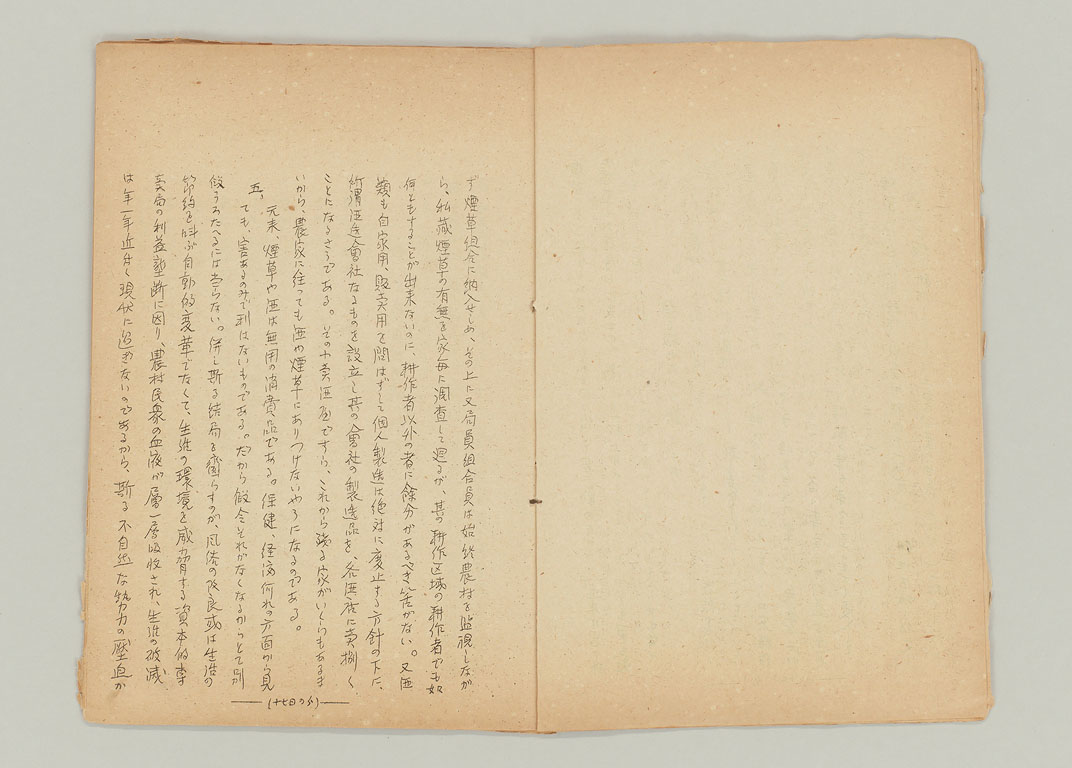 ず煙草組合に納入せしめ、その上に又局員組合員は始終農村を監視しなが
ら、私蔵煙草の有無を家毎に調査して廻るが、其の耕作区域の耕作者でも如
何ともすることが出来ないのに、耕作者以外の者に余分があるべき筈がない。又酒
類も自家用、販売用を問はずして個人製造は絶対に廃止する方針の下に、
所謂酒造會社なるものを設立し其の會社の製造品を、各酒店に売捌く
ことになるさうである。その小売酒屋ですら、これから残る家がいくらもあるま
いから、農家に径っても酒や煙草にありつけないやうになるのである。
五、元来、煙草や酒は無用の消費品である。保健、経済何れの方面から見
ても、害あるのみで利はないものである。だから仮令それがなくなるからとて別
段うろたへるには당らない。併し斯る結局を齎らすのが、風俗の改良或は生活の
節約を叫ぶ自動的変革でなくて、生活の環境を威脅する資本的専
売局の利益壟断に因り、農村民衆の血液が層一層吸收され、生活の破滅
は年一年近づく現状に過ぎないのであるから、斯る不自然な勢力の壓迫か
(十七日の分)